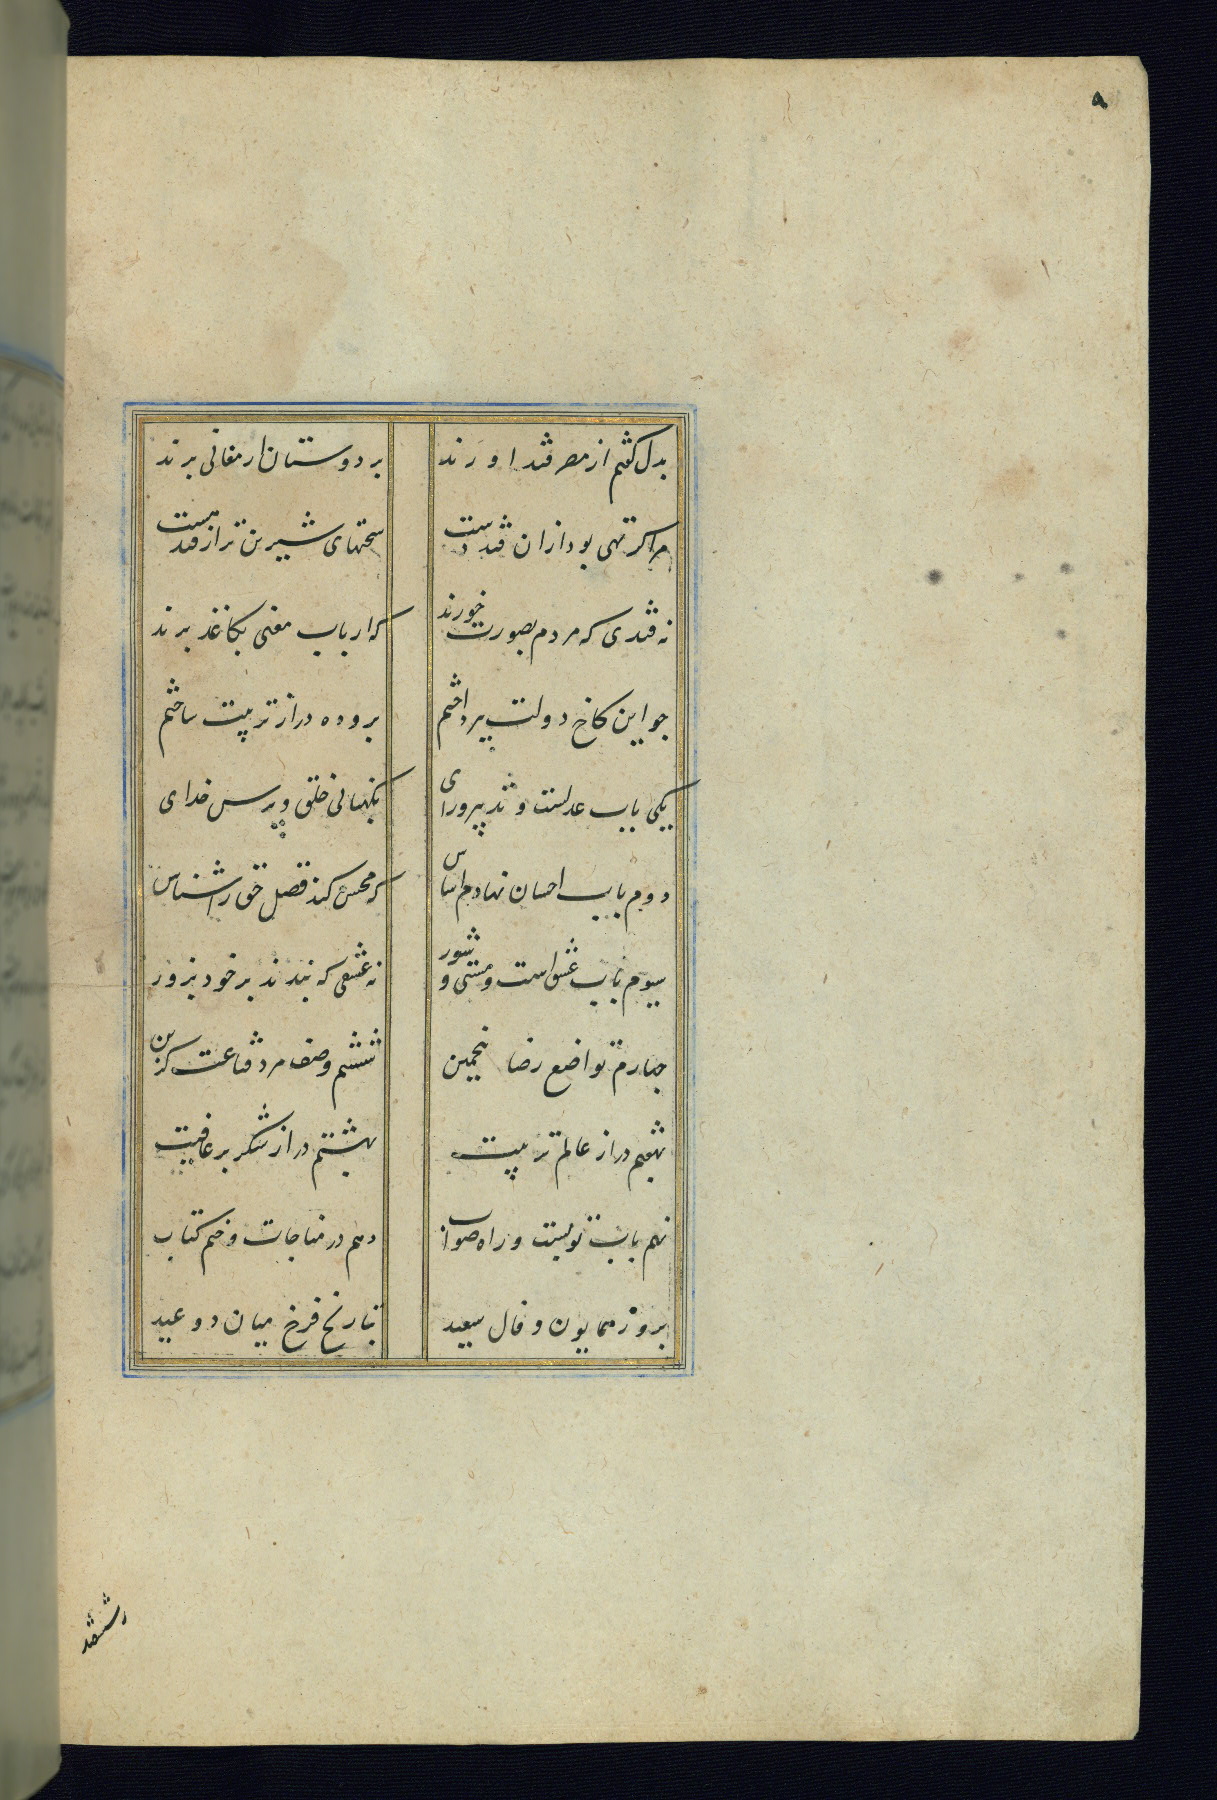 ۹
بدل گفتم از مصر قند اورند بر دوستان ارمغانی برند
مرا گر تهی بود ازان قند دست سخنهای شیرین تر از قند هست
نه قندی که مردم بصورت خورند که ارباب معنی بکاغذ برند
جو این کاخ دولت بپرداختم برو ده در از تربیت ساختم
یکی باب عدلست و تدبیر و رای نگهبانی خلق و ترس خدای
دوم باب احسان نهادم اساس که محسن کند فضل حق را شناس
سیوم باب عشق است و مستی و شور نه عشقی که بندند بر خود بزور
جهارم تواضع رضا پنجمین ششم وصف مرد قناعت گزین
بهفتم در از عالم تربیت بهشتم در از شکر بر عافیت
نهم باب توبست و راه صواب دهم در مناجات و ختم کتاب
بروز همایون و فال سعید بتاریخ فرخ میان دو عید